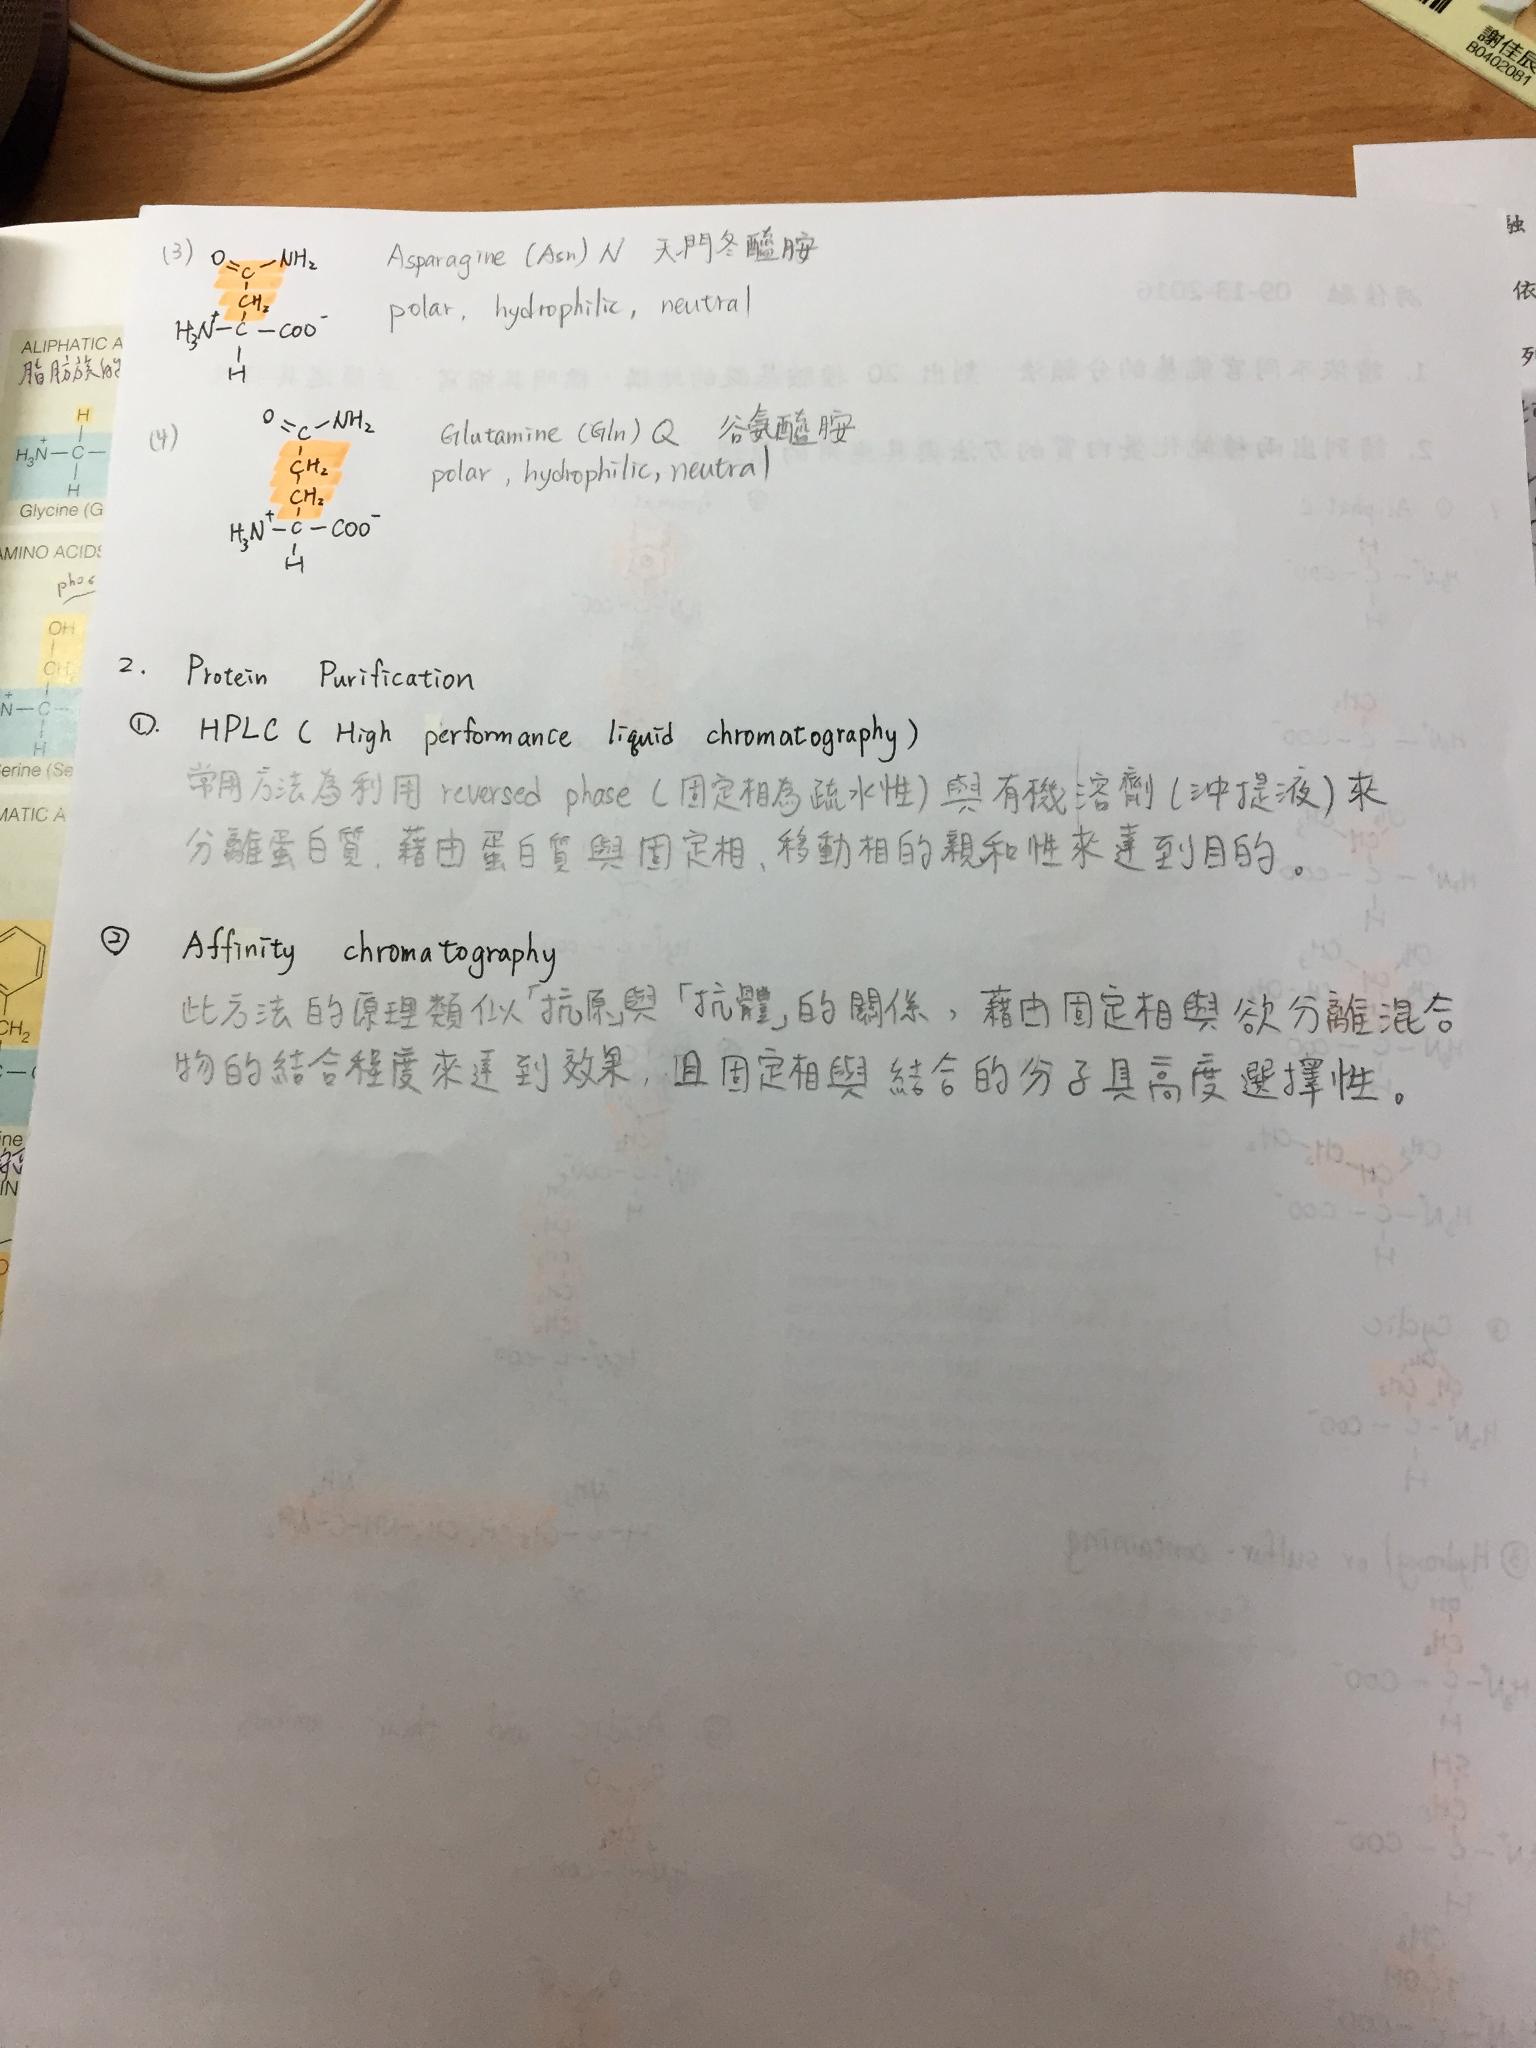 謝佳辰
B0402081
(3)
O
C
NH₂
CH₂
H₃N⁺–C–COO⁻
H
Asparagine (Asn) N 天門冬醯胺
polar, hydrophilic, neutral
(4)
O
C–NH₂
CH₂
CH₂
H₃N⁺–C–COO⁻
H
Glutamine (Gln) Q 谷氨醯胺
polar, hydrophilic, neutral
2. Protein Purification
①. HPLC ( High performance liquid chromatography)
常用方法為利用 reversed phase (固定相為疏水性) 與有機溶劑 (沖提液) 來
分離蛋白質, 藉由蛋白質與固定相、移動相的親和性來達到目的。
② Affinity chromatography
此方法的原理類似「抗原」與「抗體」的關係, 藉由固定相與欲分離混合
物的結合程度來達到效果, 且固定相與結合的分子具高度選擇性。
ALIPHATIC A
脂肪族的
H
H₃N⁺–C–
H
Glycine (G
AMINO ACIDS
OH
CH₂
N⁺–C–
H
erine (Se
MATIC A
CH₂
C–
ine
IN
依
列